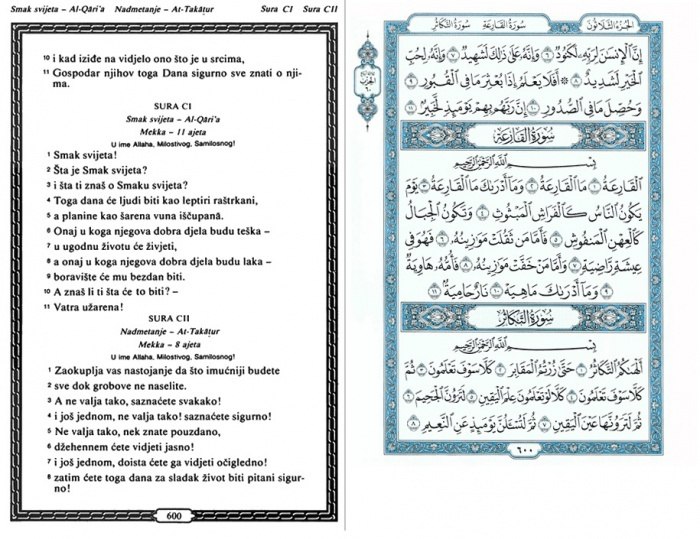 Smak svijeta – Al-Qāri'a Nadmetanje – At-Takāṯur Sura CI Sura CII
10 i kad iziđe na vidjelo ono što je u srcima,
11 Gospodar njihov toga Dana sigurno sve znati o nji-
ma.
SURA CI
Smak svijeta – Al-Qāri'a
Mekka – 11 ajeta
U ime Allaha, Milostivog, Samilosnog!
1 Smak svijeta!
2 Šta je Smak svijeta?
3 i šta ti znaš o Smaku svijeta?
4 Toga dana će ljudi biti kao leptiri raštrkani,
5 a planine kao šarena vuna iščupanā.
6 Onaj u koga njegova dobra djela budu teška –
7 u ugodnu životu će živjeti,
8 a onaj u koga njegova dobra djela budu laka –
9 boravište će mu bezdan biti.
10 A znaš li ti šta će to biti? –
11 Vatra užarena!
SURA CII
Nadmetanje – At-Takāṯur
Mekka – 8 ajeta
U ime Allaha, Milostivog, Samilosnog!
1 Zaokuplja vas nastojanje da što imućniji budete
2 sve dok grobove ne naselite.
3 A ne valja tako, saznaćete svakako!
4 i još jednom, ne valja tako! saznaćete sigurno!
5 Ne valja tako, nek znate pouzdano,
6 džehennem ćete vidjeti jasno!
7 i još jednom, doista ćete ga vidjeti očigledno!
8 zatim ćete toga dana za sladak život biti pitani sigur-
no!
600
الجزء الثلاثون سورة القارعة سورة التكاثر
إِنَّ ٱلْإِنسَٰنَ لِرَبِّهِۦ لَكَنُودٌ ٦ وَإِنَّهُۥ عَلَىٰ ذَٰلِكَ لَشَهِيدٌ ٧ وَإِنَّهُۥ لِحُبِّ
ٱلْخَيْرِ لَشَدِيدٌ ٨ ۞ أَفَلَا يَعْلَمُ إِذَا بُعْثِرَ مَا فِى ٱلْقُبُورِ ٩
وَحُصِّلَ مَا فِى ٱلصُّدُورِ ١٠ إِنَّ رَبَّهُم بِهِمْ يَوْمَئِذٍ لَّخَبِيرٌۢ ١١
سورة القارعة
بِسْمِ ٱللَّهِ ٱلرَّحْمَٰنِ ٱلرَّحِيمِ
ٱلْقَارِعَةُ ١ مَا ٱلْقَارِعَةُ ٢ وَمَآ أَدْرَىٰكَ مَا ٱلْقَارِعَةُ ٣ يَوْمَ
يَكُونُ ٱلنَّاسُ كَٱلْفَرَاشِ ٱلْمَبْثُوثِ ٤ وَتَكُونُ ٱلْجِبَالُ
كَٱلْعِهْنِ ٱلْمَنفُوشِ ٥ فَأَمَّا مَن ثَقُلَتْ مَوَٰزِينُهُۥ ٦ فَهُوَ فِى
عِيشَةٍ رَّاضِيَةٍ ٧ وَأَمَّا مَنْ خَفَّتْ مَوَٰزِينُهُۥ ٨ فَأُمُّهُۥ هَاوِيَةٌ
٩ وَمَآ أَدْرَىٰكَ مَا هِيَهْ ١٠ نَارٌ حَامِيَةٌۢ ١١
سورة التكاثر
بِسْمِ ٱللَّهِ ٱلرَّحْمَٰنِ ٱلرَّحِيمِ
أَلْهَىٰكُمُ ٱلتَّكَاثُرُ ١ حَتَّىٰ زُرْتُمُ ٱلْمَقَابِرَ ٢ كَلَّا سَوْفَ تَعْلَمُونَ ٣ ثُمَّ
كَلَّا سَوْفَ تَعْلَمُونَ ٤ كَلَّا لَوْ تَعْلَمُونَ عِلْمَ ٱلْيَقِينِ ٥ لَتَرَوُنَّ ٱلْجَحِيمَ ٦
ثُمَّ لَتَرَوُنَّهَا عَيْنَ ٱلْيَقِينِ ٧ ثُمَّ لَتُسْـَٔلُنَّ يَوْمَئِذٍ عَنِ ٱلنَّعِيمِ ٨
٦٠٠